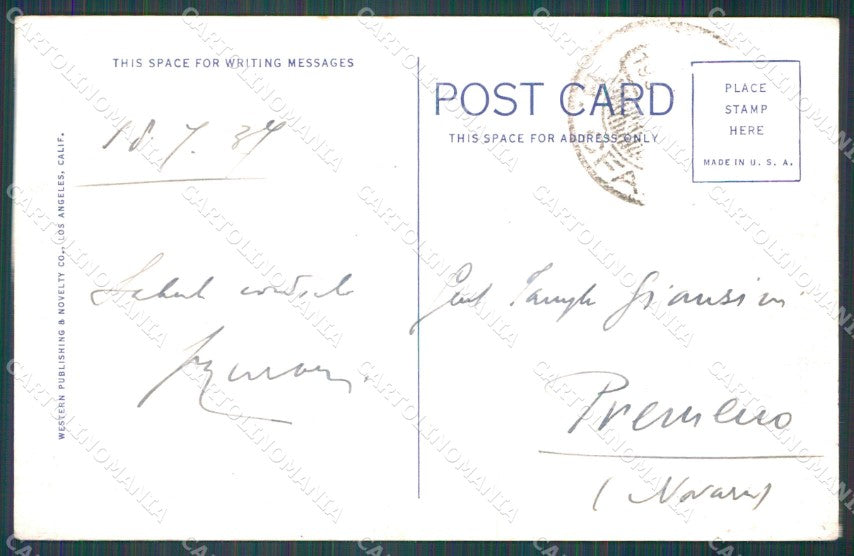 THIS SPACE FOR WRITING MESSAGES
POST CARD
THIS SPACE FOR ADDRESS ONLY
PLACE
STAMP
HERE
MADE IN U. S. A.
WESTERN PUBLISHING & NOVELTY CO., LOS ANGELES, CALIF.
18. 7. 37
Gent Famigla
Premeno
(Novara)
CARTOLINOMANIA